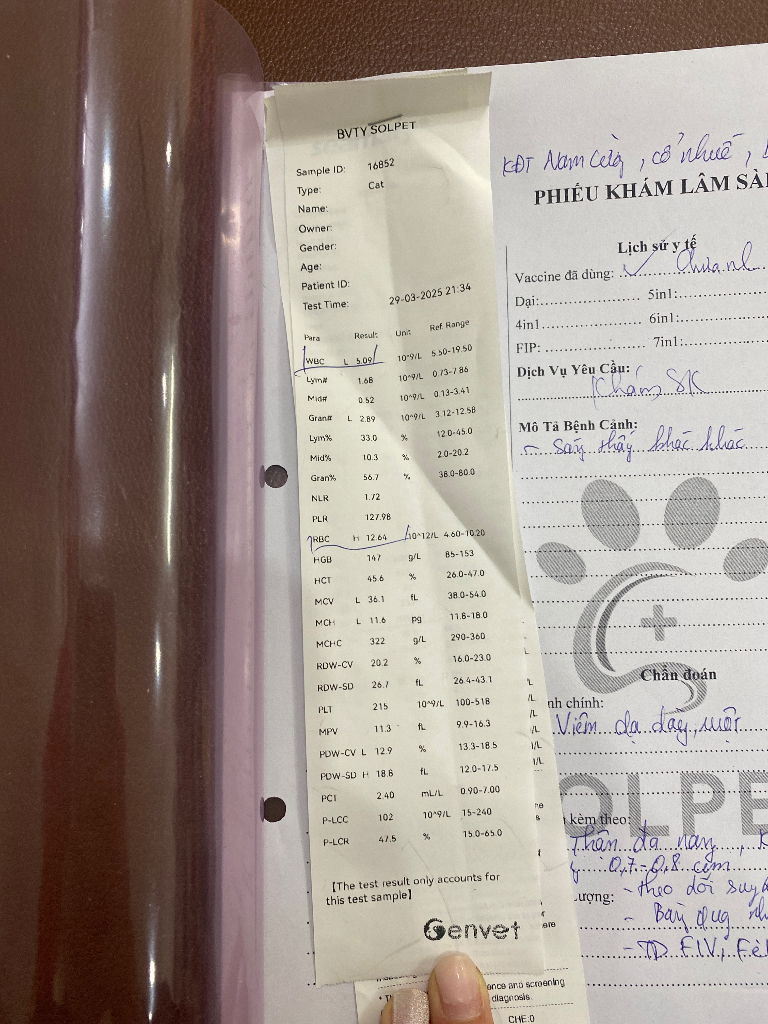 BVTY SOLPET
Sample ID: 16852
Type: Cat
Name:
Owner:
Gender:
Age:
Patient ID:
Test Time: 29-03-2025 21:34
Para Result Unit Ref Range
WBC L 5.09 10^9/L 5.50-19.50
Lym# 1.68 10^9/L 0.73-7.86
Mid# 0.52 10^9/L 0.13-3.41
Gran# L 2.89 10^9/L 3.12-12.58
Lym% 33.0 % 12.0-45.0
Mid% 10.3 % 2.0-20.2
Gran% 56.7 % 38.0-80.0
NLR 1.72
PLR 127.98
RBC H 12.64 10^12/L 4.60-10.20
HGB 147 g/L 85-153
HCT 45.6 % 26.0-47.0
MCV L 36.1 fL 38.0-54.0
MCH L 11.6 pg 11.8-18.0
MCHC 322 g/L 290-360
RDW-CV 20.2 % 16.0-23.0
RDW-SD 26.7 fL 26.4-43.1
PLT 215 10^9/L 100-518
MPV 11.3 fL 9.9-16.3
PDW-CV L 12.9 % 13.3-18.5
PDW-SD H 18.8 fL 12.0-17.5
PCT 2.40 mL/L 0.90-7.00
P-LCC 102 10^9/L 15-240
P-LCR 47.5 % 15.0-65.0
[The test result only accounts for
this test sample]
Genvet
KĐT Nam Cường, cổ nhuế,
PHIẾU KHÁM LÂM SÀ
Lịch sử y tế
Vaccine đã dùng:
Dại: 5in1:
4in1 6in1:
FIP: 7in1:
Dịch Vụ Yêu Cầu:
Khám SK
Mô Tả Bệnh Cảnh:
- thấy khác khác
Chẩn đoán
nh chính:
Viêm dạ dày, ruột
OLPE
kèm theo:
Thận đa nang, K
0,7-0,8 cm
ượng: - theo dõi suy
-
- TD FIV, FeL
ence and screening
diagnosis.
CHE:0